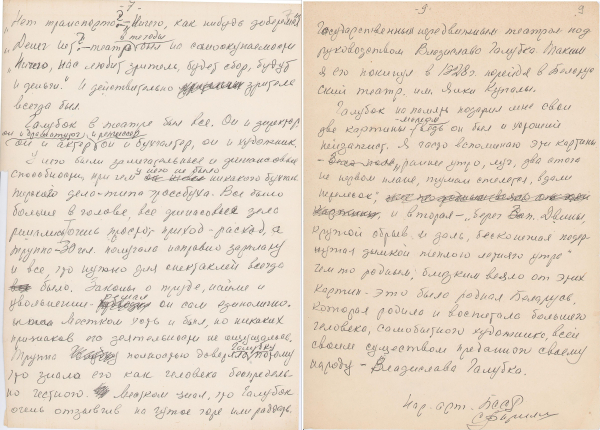 -7-
"Нет транспорта? Ничего, как нибудь доберемся"
"Денег нет?" – театр в те годы был на самоокупаемости
"Ничего, нас любит зритель, будет сбор, будут
и деньги." И действительно зритель
всегда был.
Галубок в театре был все. Он и директор
он и драматург, и режиссер
он и актер, он и бухгалтер, он и художник.
У него были замечательные и финансовые
способности, при чем у него не было никакого бухгал
терского дела – типа гроссбуха. Все было
больше в голове, все финансовые дела
решались очень просто: приход – расход, а
труппа – 30 чел. получала исправно зарплату
и все, что нужно для спектаклей всегда
было. Законы о труде, найме и
увольнении – решал он сам единолично.
Местком хоть и был, но никаких
признаков его деятельности не ощущалось.
Труппа полностью доверяла Галубку, потому
что знала его как человека беспредель
но честного. Местком знал, что Галубок
очень отзывчив на чужое горе или радость.
-9-
9
Государственным передвижным театром под
руководством Владислава Галубка. Таким
я его покинул в 1928 г. перейдя в Белорус
ский театр им. Янки Купалы.
Галубок на память подарил мне свои
две картины – ведь он был и хороший
пейзажист. Я часто вспоминаю эти картины
– раннее утро, луг, два стога
на первом плане, туман стелется, вдали
и вторая –, берег Зап. Двины,
крутой обрыв и даль, бесконечная подер
нутая дымкой теплого летнего утра"
Чем то родным, близким веяло от этих
картин – это была родная Беларусь,
которая родила и воспитала большого
человека, самобытного художника, всей
своим существом преданного своему
народу – Владислава Галубка.
Нар. арт. БССР